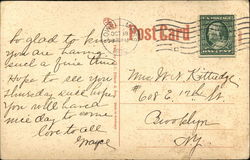 Post Card
So glad to know
you are having
such a fine time
Hope to see you
Thursday next. hope
you will have a
nice day to come
love to all
Grayce
Mrs. W. N. Kittridge
#608 E. 17th St.
Brooklyn
N.Y.